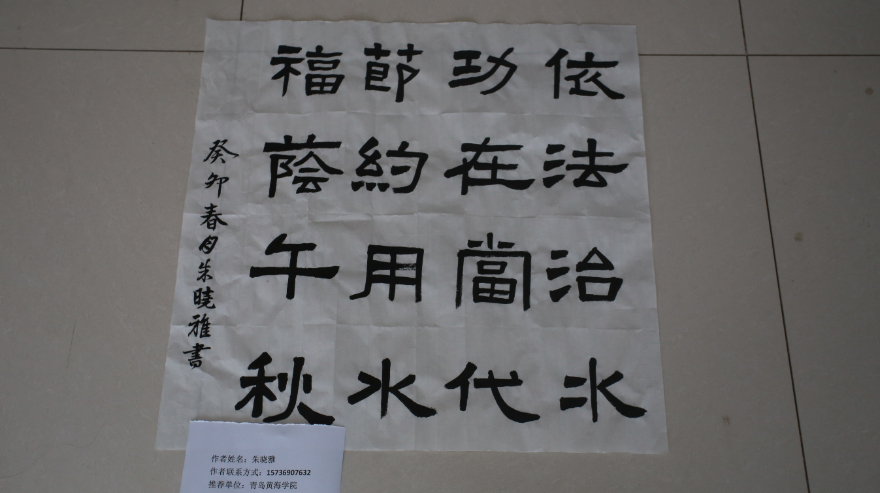 依法治水
功在當代
節約用水
福蔭午秋
癸卯春月朱曉雅書
作者姓名：朱晓雅
作者联系方式：15736907632
推荐单位：青岛黄海学院